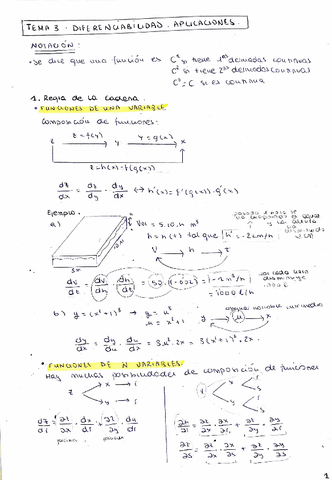 TEMA 3. DIFERENCIABILIDAD. APLICACIONES.
NOTACIÓN:
• Se dice que una función es C¹ si tiene 1as derivadas continuas
C² si tiene 2as derivadas continuas
C⁰ = C si es continua
1. Regla de la cadena.
• FUNCIONES DE UNA VARIABLE
Composición de funciones:
z = f(y) y = g(x)
z y x
z = h(x) = f(g(x))
dz/dx = dz/dy · dy/dx ↔ h'(x) = f'(g(x)) · g'(x)
Ejemplo.
a) Vol = 5.10.h m³
h = h(t) tal que h' = -2cm/h
V h t
10m
5m
dV/dt = dV/dh · dh/dt = 50.(-0.02) = -1 m³/h
= 1000 l/h
b) y = (x²+1)³ → y = u³
u = x²+1
y u x
dy/dx = dy/du · du/dx = 3u² · 2x = 3(x²+1)² · 2x.
• FUNCIONES DE N VARIABLES
Hay muchas posibilidades de composición de funciones
z x r
y r
z x r s
y r s
dz/dr = ∂z/∂x · dx/dr + ∂z/∂y · dy/dr
parcial
∂z/∂r = ∂z/∂x · ∂x/∂r + ∂z/∂y · ∂y/∂r
∂z/∂s = ∂z/∂x · ∂x/∂s + ∂z/∂y · ∂y/∂s
1